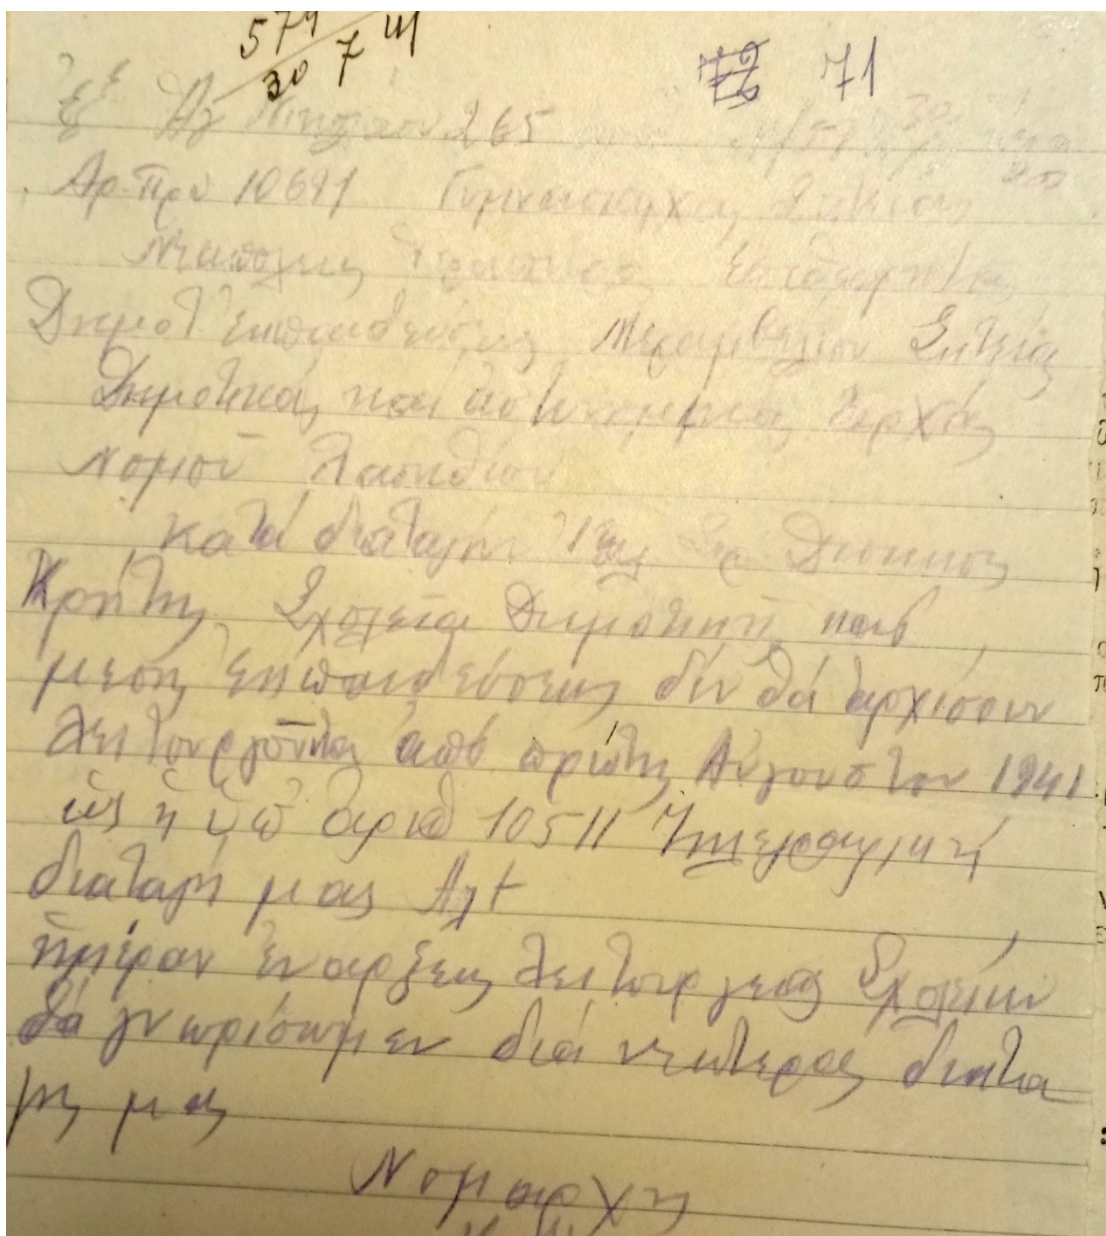 574
30 7 41
72 71
Ἐξ Ἁγ Νικολάου 265
Αρ Πρω 10691 Γυμνασιάρχας Σητείας
Νεαπόλεως Ἱεράπετρας Ἐπιθεωρητὰς
Δημοτ Ἐκπαιδεύσεως Μεραμβέλλου Σητείας
Δημοτικάς καί ἀστυνομικάς ἀρχάς
Νομοῦ Λασηθίου
κατά διαταγήν Γεν Διοικησ
Κρήτης Σχολεῖα Δημοτικῆς καί
μέσης ἐκπαιδεύσεως δέν θά ἀρχίσουν
λειτουργοῦντα ἀπό πρώτης Αὐγούστου 1941
ὡς ἡ ὑπ ἀριθ 10511 τηλεγραφική
διαταγή μας Αλτ
ἡμέραν ἐνάρξεως λειτουργείας Σχολείων
θά γνωρίσωμεν διά νεωτέρας διατα
γῆς μας
Νομάρχης